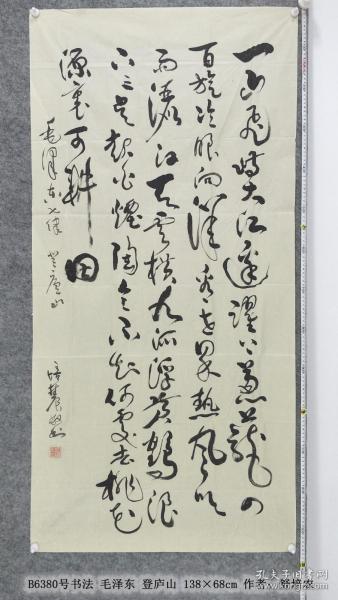 一山飞峙大江边跃上葱茏四
百旋冷眼向洋看世界热风吹
雨洒江天云横九派浮黄鹤浪
下三吴起白烟陶令不知何处去桃花
源里可耕田
毛泽东七律 登庐山
B6380号书法 毛泽东 登庐山 138×68cm 作者：舒培农
孔夫子旧书网